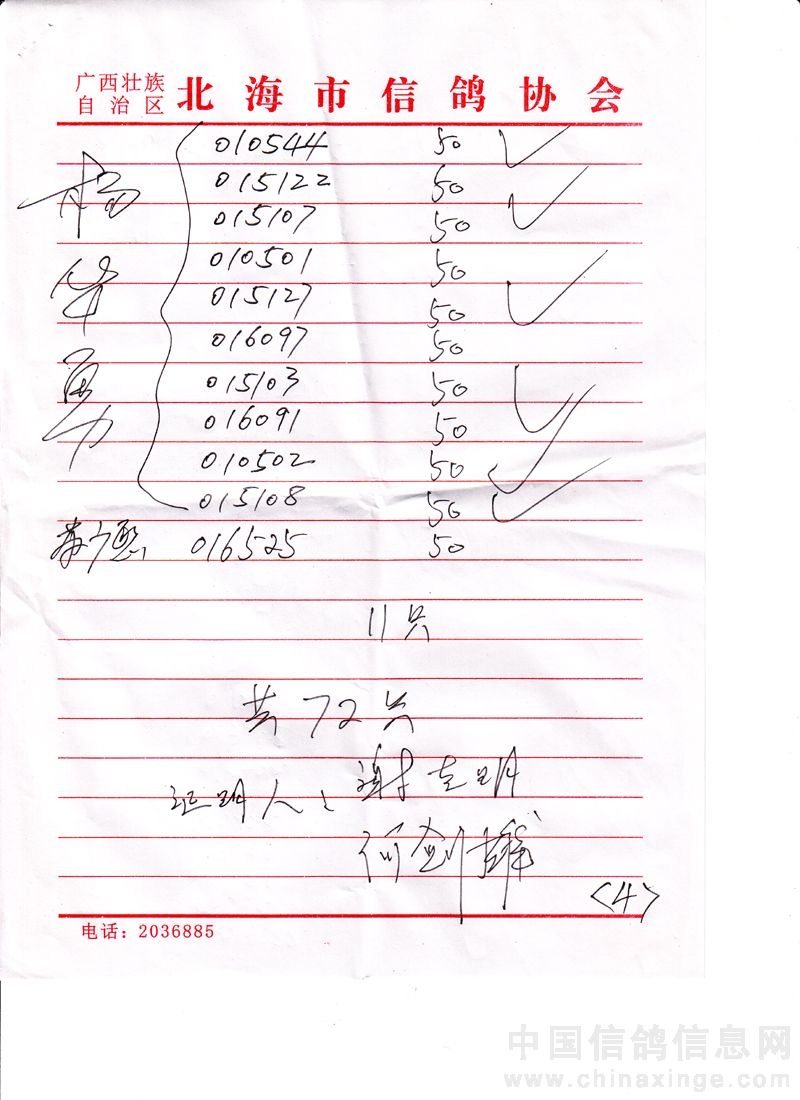 广西壮族
自治区
北海市信鸽协会
杨华勇
010544 50
015122 50
015107 50
010501 50
015127 50
016097 50
015103 50
016091 50
010502 50
015108 50
016525 50
11只
共72只
证明人:谢志明
何剑雄
<4>
电话:2036885
中国信鸽信息网
www.chinaxinge.com